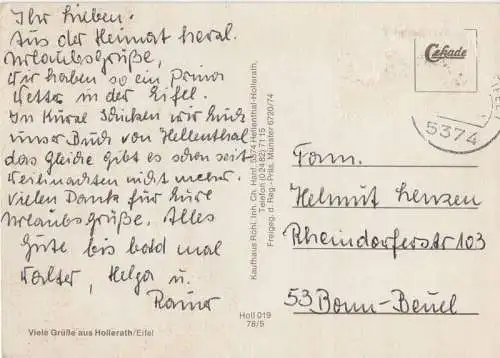 Ihr Lieben.
Aus der Heimat herzl.
Urlaubsgrüße,
wir haben so ein Prima
Wetter in der Eifel.
In Kürze schicken wir Euch
unser Buch von Hellenthal
das Gleiche gibt es schon seit
Weihnachten nicht mehr.
Vielen Dank für Eure
Urlaubsgrüße. Alles
Gute bis bald mal
Walter, Helga u.
Rainer
Viele Grüße aus Hollerath/Eifel
Kaufhaus Röhl, Inh. Ch. Hanf, 5374 Hellenthal-Hollerath,
Telefon (02482) 7115
Freigeg. d. Reg.-Präs. Münster 6720/74
Holl 019
78/5
Cekade
5374
Fam.
Helmut Lenzen
Rheindorferstr 103
53 Bonn-Beuel